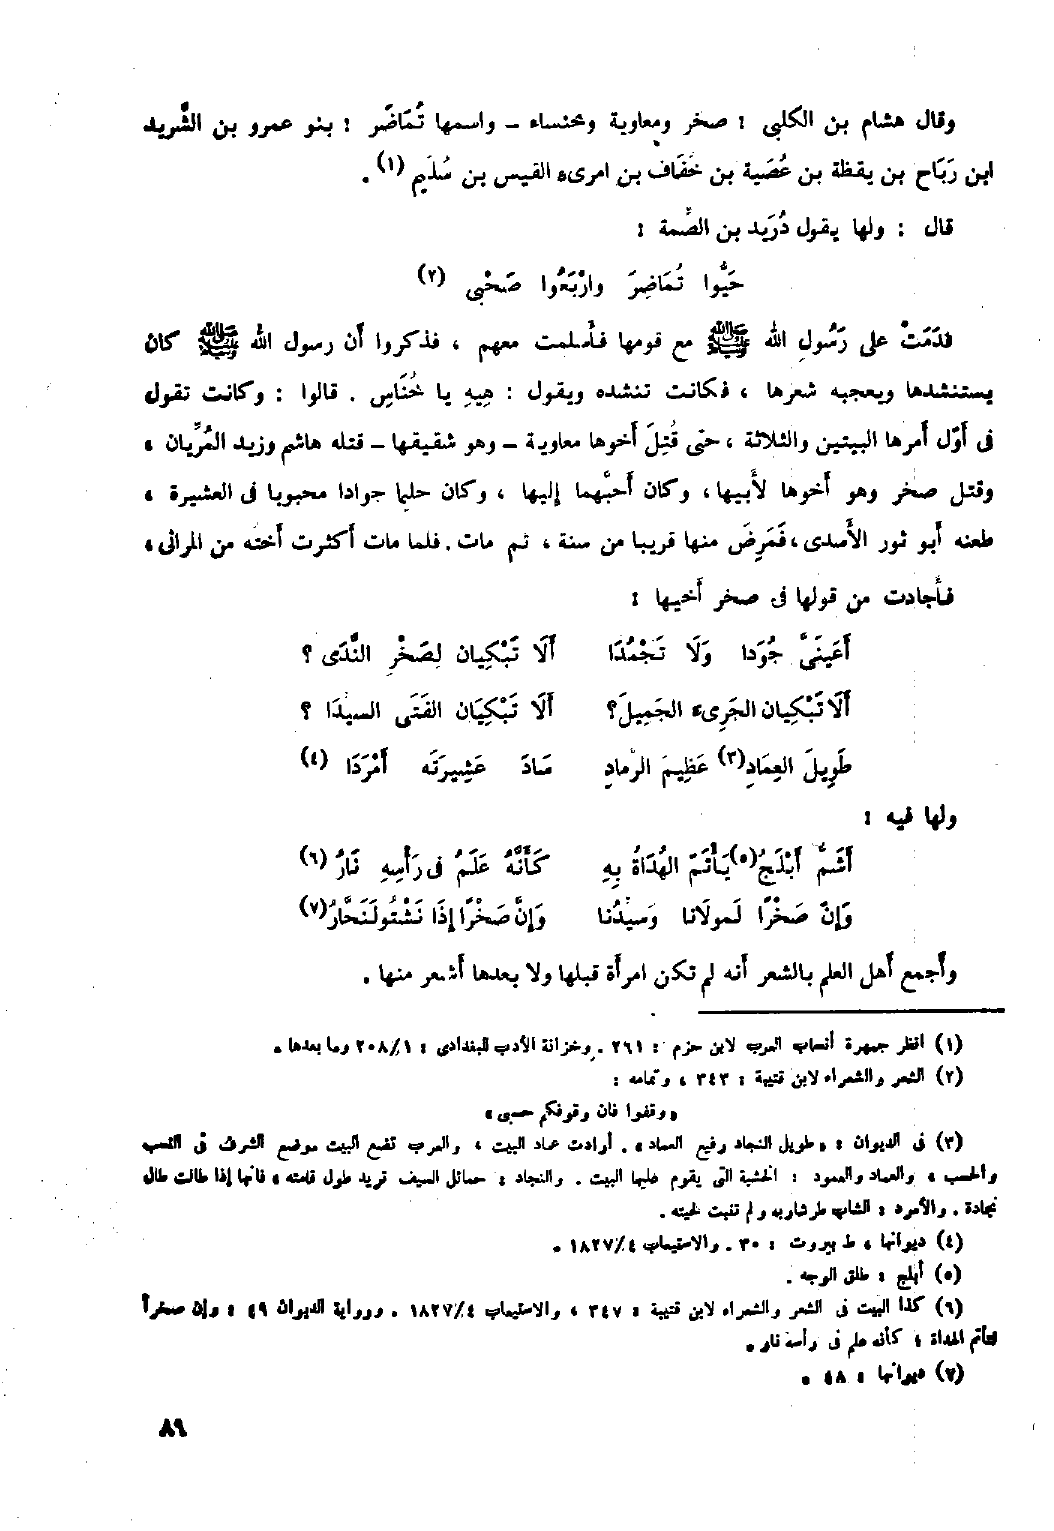 وقال هشام بن الكلبى : صخر ومعاوية وخنساء – واسمها تُمَاضَر : بنو عمرو بن الشَّريد
ابن رَبَاح بن يقظة بن عُصَية بن خُفَاف بن امرىء القيس بن سُلَيم (١) .
قال : ولها يقول دُرَيد بن الصِّمة :
حَيُّوا تُمَاضِرَ وارْبَعُوا صَحْبِى (٢)
قدَمَتْ على رَسُولِ الله ﷺ مع قومها فأسلمت معهم ، فذكروا أن رسول الله ﷺ كان
يستنشدها ويعجبه شعرها ، فكانت تنشده ويقول : هِيهِ يا خُنَاسِ . قالوا : وكانت تقول
فى أوّل أمرها البيتين والثلاثة ، حتى قُتِلَ أخوها معاوية – وهو شقيقها – قتله هاشم وزيد المُرِّيان ،
وقتل صخر وهو أخوها لأبيها ، وكان أحبَّهما إليها ، وكان حليما جوادا محبوبا فى العشيرة ،
طعنه أبو ثور الأسدى ، فَمَرِضَ منها قريبا من سنة ، ثم مات . فلما مات أكثرت أخته من المراثى ،
فأجادت من قولها فى صخر أخيها :
أَعَينَىَّ جُوَدا وَلَا تَجْمُدَا أَلَا تَبْكِيان لِصَخْرِ النَّدَى ؟
أَلَا تَبْكِيان الجَرِىء الجَمِيلَ؟ أَلَا تَبْكِيَان الفَتَى السيدَا ؟
طَوِيلَ العِمَادِ(٣) عَظِيمَ الرّمادِ سَادَ عَشِيرَتَه أَمْرَدَا (٤)
ولها فيه :
أَشَمُّ أَبْلَجُ(٥) يَأْتَمّ الهُدَاةُ بِهِ كَأَنَّهُ عَلَمٌ فى رَأْسِهِ نَارُ (٦)
وَإِنّ صَخْرًا لَمولَانا وَسَيدُنا وَإِنَّ صَخْرًا إِذَا نَشْتُو لَنَحَّارُ(٧)
وأجمع أهل العلم بالشعر أنه لم تكن امرأة قبلها ولا بعدها أشعر منها .
(١) انظر جمهرة أنساب العرب لابن حزم : ٢٦١ . وخزانة الأدب للبغدادى : ٢٠٨/١ وما بعدها .
(٢) الشعر والشعراء لابن قتيبة : ٣٤٣ ، وتمامه :
« وقفوا فان وقوفكم حسبى »
(٣) فى الديوان : « طويل النجاد رفيع العماد » . أرادت عماد البيت ، والعرب تضع البيت موضع الشرف فى النسب
والحسب ، والعماد والعمود : الخشبة التى يقوم عليها البيت . والنجاد : حمائل السيف تريد طول قامته ، فانها إذا طالت طال
نجادة . والأمرد : الشاب طر شاربه ولم تنبت لحيته .
(٤) ديوانها ، ط بيروت : ٣٠ . والاستيعاب ١٨٢٧/٤ .
(٥) أبلج : طلق الوجه .
(٦) كذا البيت فى الشعر والشعراء لابن قتيبة : ٣٤٧ ، والاستيعاب ١٨٢٧/٤ . ورواية الديوان ٤٩ : وإن صخراً
لتأتم الهداة ، كأنه علم فى رأسه نار .
(٧) ديوانها : ٤٨ .
٨٩